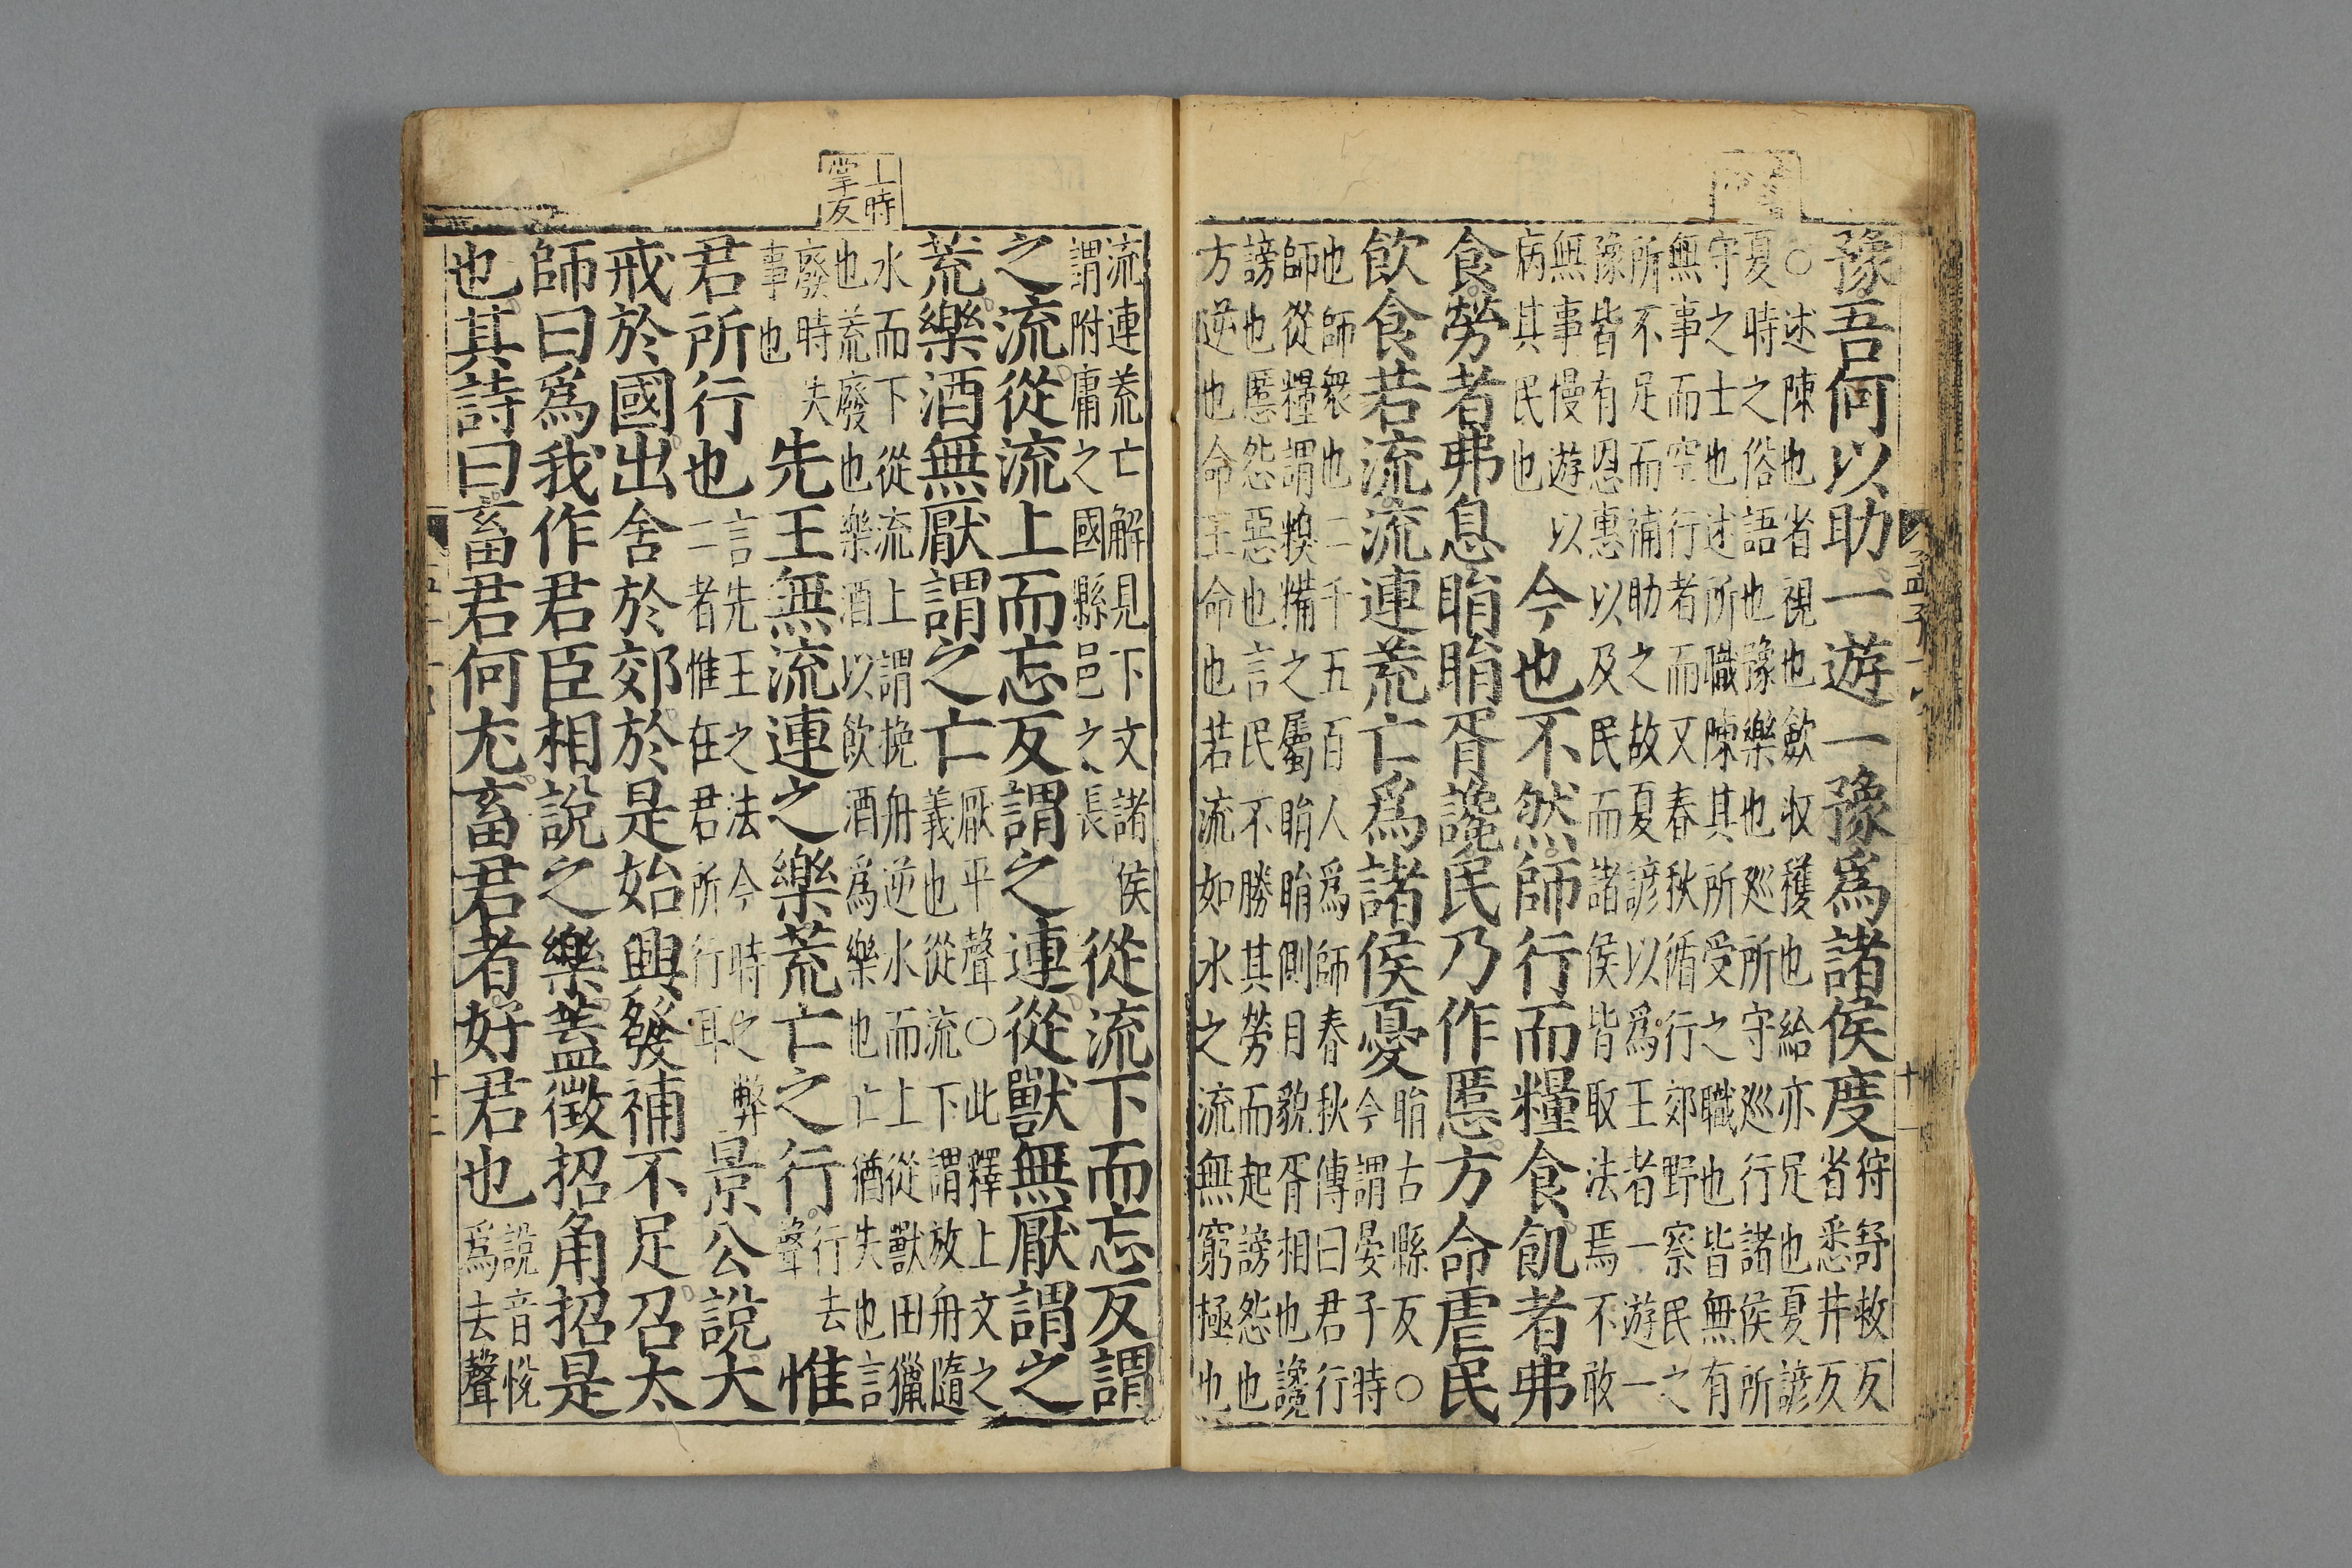 豫吾何以助一遊一豫爲諸侯度
狩舒救反
省悉井反
○述陳也省視也斂收穫也給亦足也夏諺
夏時之俗語也豫樂也巡所守巡行諸侯所
守之士也述所職陳其所受之職也皆無有
無事而空行者而又春秋循行郊野察民之
所不足而補助之故夏諺以爲王者一遊一
豫皆有恩惠以及民而諸侯皆取法焉不敢
無事慢遊以
病其民也
今也不然師行而糧食飢者弗
食勞者弗息睊睊胥讒民乃作慝方命虐民
飲食若流流連荒亡爲諸侯憂
睊古縣反○
今謂晏子時
也師衆也二千五百人爲師春秋傳曰君行
師從糧謂糗糒之屬睊睊側目貌胥相也讒
謗也慝怨惡也言民不勝其勞而起謗怨也
方逆也命王命也若流如水之流無窮極也
上時
掌反
流連荒亡解見下文諸侯
謂附庸之國縣邑之長
從流下而忘反謂
之流從流上而忘反謂之連從獸無厭謂之
荒樂酒無厭謂之亡
厭平聲○此釋上文之
義也從流下謂放舟隨
水而下從流上謂挽舟逆水而上從獸田獵
也荒廢也樂酒以飲酒爲樂也亡猶失也言
廢時失
事也
先王無流連之樂荒亡之行
行去
聲
惟
君所行也
言先王之法今時之弊
二者惟在君所行耳
景公說大
戒於國出舍於郊於是始興發補不足召太
師曰爲我作君臣相說之樂蓋徵招角招是
也其詩曰畜君何尤畜君者好君也
說音悅
爲去聲